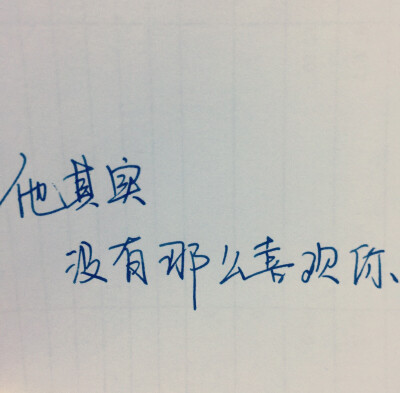 他其实
没有那么喜欢你、